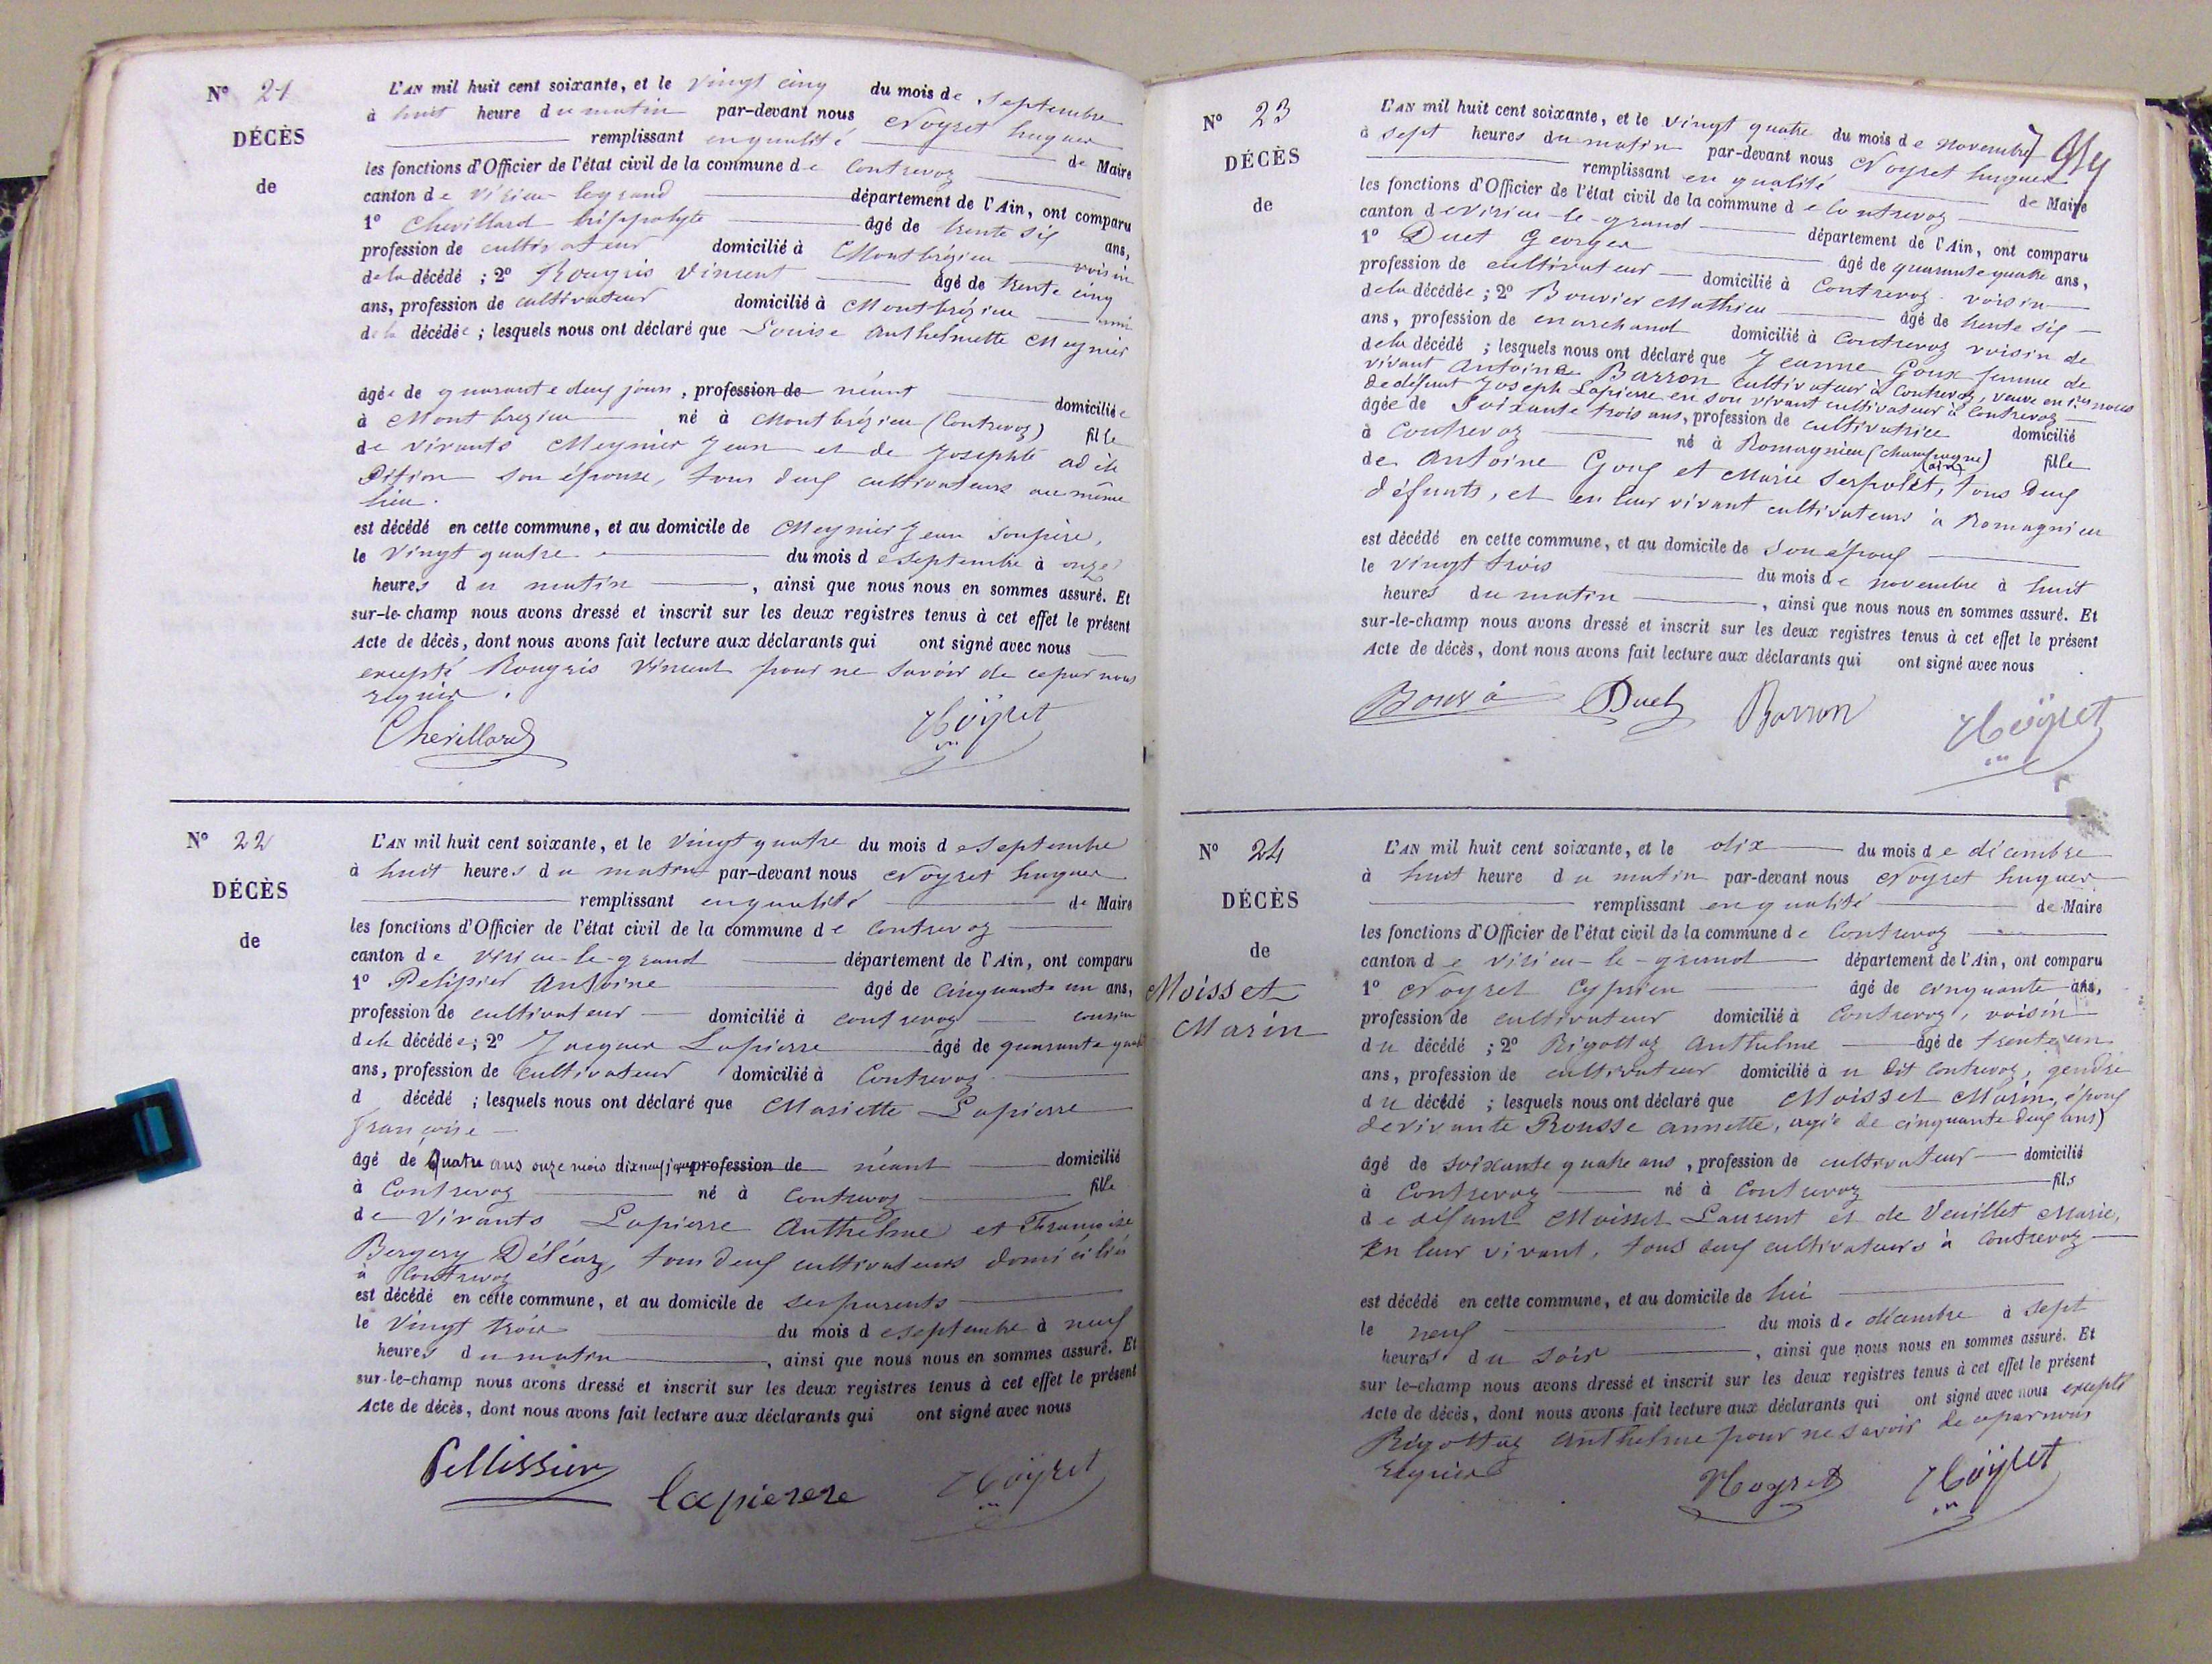 N° 21
DÉCÈS
de
L'AN mil huit cent soixante, et le vingt cinq du mois de septembre
à huit heure du matin par-devant nous Noyret hugues
remplissant en qualité de Maire
les fonctions d'Officier de l'état civil de la commune de Contrevoz
canton de virieu le grand département de l'Ain, ont comparu
1° Chevillard hippolyte âgé de trente six ans,
profession de cultivateur domicilié à Montbrézieu voisin
de la décédé ; 2° Rougris Vincent âgé de trente cinq
ans, profession de cultivateur domicilié à Montbrézieu ami
de la décédée ; lesquels nous ont déclaré que Louise Anthelmette Meynier
âgée de quarante deux jours, profession de néant domiciliée
à Montbrezieu né à Montbrézieu (Contrevoz) fille
de vivants Meynier Jean et de Josephte
Dition son épouse, tous deux cultivateurs au même
lieu.
est décédé en cette commune, et au domicile de Meynier Jean son père,
le vingt quatre du mois de septembre à onze
heures du matin, ainsi que nous nous en sommes assuré. Et
sur-le-champ nous avons dressé et inscrit sur les deux registres tenus à cet effet le présent
Acte de décès, dont nous avons fait lecture aux déclarants qui ont signé avec nous
excepté Rougris Vincent pour ne savoir de ce par nous
requis.
Chevillard Noÿret
N° 22
DÉCÈS
de
L'AN mil huit cent soixante, et le vingt quatre du mois de septembre
à huit heures du matin par-devant nous Noyret hugues
remplissant en qualité de Maire
les fonctions d'Officier de l'état civil de la commune de Contrevoz
canton de virieu-le-grand département de l'Ain, ont comparu
1° Pelissier Antoine âgé de cinquante un ans,
profession de cultivateur domicilié à contrevoz cousin
de la décédée ; 2° Jacques Lapierre âgé de quarante quatre
ans, profession de cultivateur domicilié à Contrevoz
d décédé ; lesquels nous ont déclaré que Mariette Lapierre
françoise
âgé de Quatre ans onze mois dix neuf jours profession de néant domicilié
à Contrevoz né à Contrevoz fille
de vivants Lapierre Anthelme et Françoise
Bergery Déléaz, tous deux cultivateurs domiciliés
à Contrevoz
est décédé en cette commune, et au domicile de ses parents
le vingt trois du mois de septembre à neuf
heures du matin, ainsi que nous nous en sommes assuré. Et
sur-le-champ nous avons dressé et inscrit sur les deux registres tenus à cet effet le présent
Acte de décès, dont nous avons fait lecture aux déclarants qui ont signé avec nous
Pellissier lapierere Noÿret
N° 23
DÉCÈS
de
L'AN mil huit cent soixante, et le vingt quatre du mois de novembre
à sept heures du matin par-devant nous Noyret hugues
remplissant en qualité de Maire
les fonctions d'Officier de l'état civil de la commune de Contrevoz
canton de virieu-le-grand département de l'Ain, ont comparu
1° Duet Georges âgé de quarante quatre ans,
profession de cultivateur domicilié à Contrevoz voisin
de la décédée ; 2° Bouvier Mathieu âgé de trente six
ans, profession de marchand domicilié à Contrevoz voisin de
de la décédé ; lesquels nous ont déclaré que Jeanne Goux femme de
vivant Antoine Barron cultivateur à Contrevoz, veuve en 1res noces
de défunt Joseph Lapierre en son vivant cultivateur à Contrevoz
âgée de Soixante trois ans, profession de cultivatrice domicilié
à Contrevoz né à Romagnieu (champagne) (ain) fille
de Antoine Goux et Marie Serpolet, tous deux
défunts, et en leur vivant cultivateurs à Romagnieu
est décédé en cette commune, et au domicile de son époux
le vingt trois du mois de novembre à huit
heures du matin, ainsi que nous nous en sommes assuré. Et
sur-le-champ nous avons dressé et inscrit sur les deux registres tenus à cet effet le présent
Acte de décès, dont nous avons fait lecture aux déclarants qui ont signé avec nous
Duet Barron Noÿret
N° 24
DÉCÈS
de
Moisset
Marin
L'AN mil huit cent soixante, et le dix du mois de décembre
à huit heure du matin par-devant nous Noyret hugues
remplissant en qualité de Maire
les fonctions d'Officier de l'état civil de la commune de Contrevoz
canton de virieu-le-grand département de l'Ain, ont comparu
1° Noyret Cyprien âgé de cinquante ans,
profession de cultivateur domicilié à Contrevoz, voisin
du décédé ; 2° Rigottaz Anthelme âgé de trente un
ans, profession de cultivateur domicilié à u dit Contrevoz, gendre
du décédé ; lesquels nous ont déclaré que Moisset Marin, époux
de vivante Rousse annette, agée de cinquante deux ans)
âgé de soixante quatre ans, profession de cultivateur domicilié
à Contrevoz né à Contrevoz fils
de défunt Moisset Laurent et de Veuillet Marie,
En leur vivant, tous deux cultivateurs à Contrevoz
est décédé en cette commune, et au domicile de lui
le neuf du mois de décembre à sept
heures du soir, ainsi que nous nous en sommes assuré. Et
sur le-champ nous avons dressé et inscrit sur les deux registres tenus à cet effet le présent
Acte de décès, dont nous avons fait lecture aux déclarants qui ont signé avec nous excepté
Rigottaz Anthelme pour ne savoir de ce par nous
requis
Noyret Noÿret